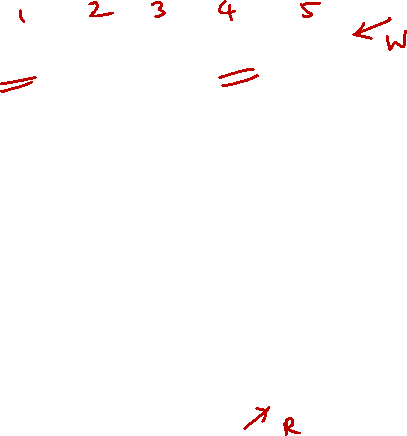 1 2 3 4 5
W
R